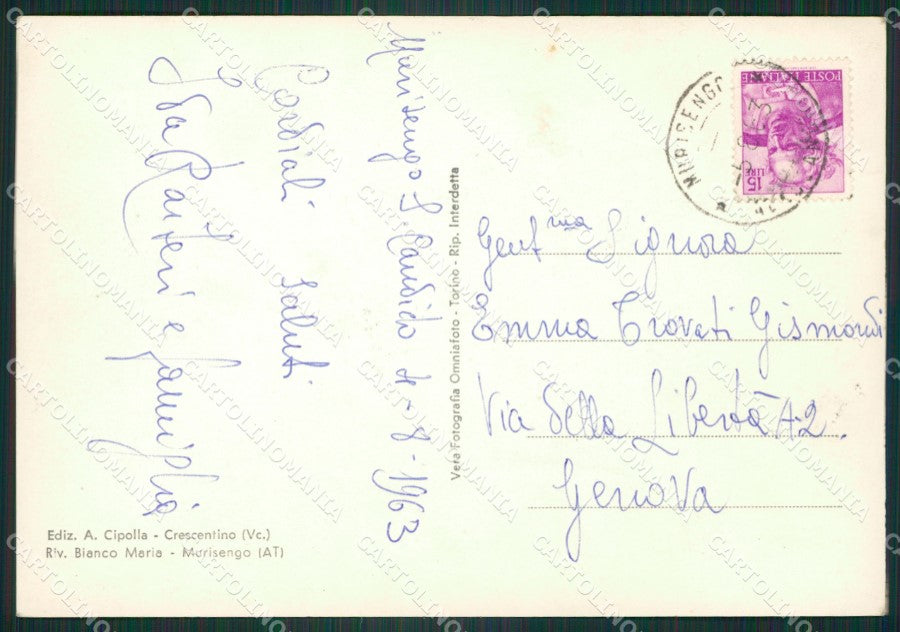 Murisengo S. Candido 1-8-1963
Cordiali saluti
Ida Raiteri e famiglia
Gent.ma Signora
Emma Trovati Gismondi
Via Della Libertà 12.
Genova
Vera Fotografia Omniafoto - Torino - Rip. Interdetta
Ediz. A. Cipolla - Crescentino (Vc.)
Riv. Bianco Maria - Murisengo (AT)
POSTE ITALIANE
15 LIRE
MURISENGO
CARTOLINOMANIA